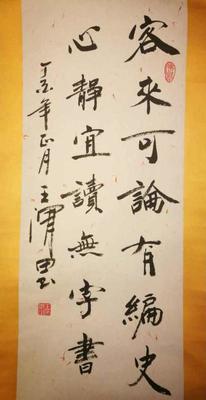 客來可論有編史
心靜宜讀無字書
丁亥年正月王